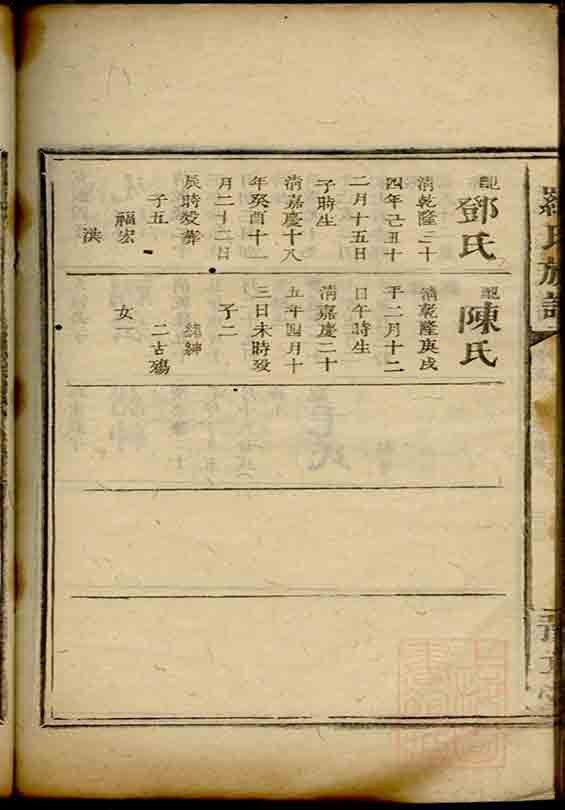 羅氏族譜
配
鄧氏
清乾隆三十
四年己丑十
二月十五日
子時生
清嘉慶十八
年癸酉十一
月二十二日
辰時歿葬
子五
福宏
洪
配
陳氏
清乾隆庚戌
年二月十二
日午時生
清嘉慶二十
五年四月十
三日未時歿
子二
純紳
二古殤
女一